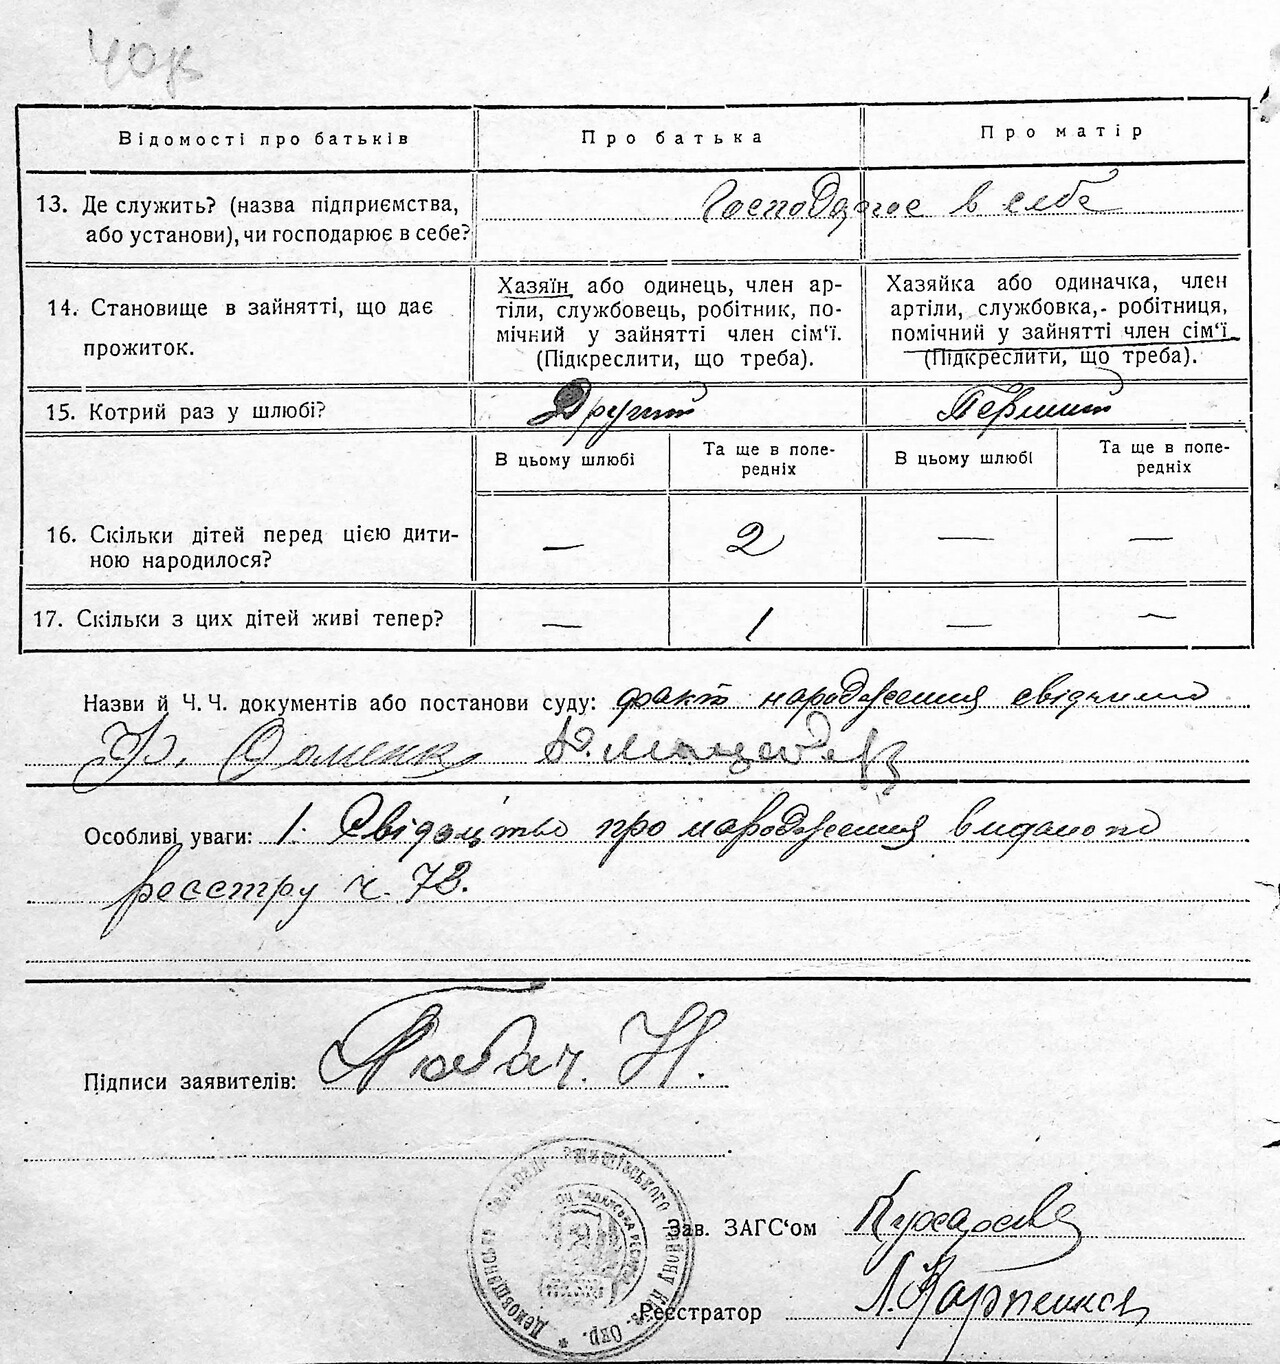 Відомості про батьків
Про батька
Про матір
13. Де служить? (назва підприємства,
або установи), чи господарює в себе?
Господарює в себе
14. Становище в зайнятті, що дає
прожиток.
Хазяїн або одинець, член ар-
тіли, службовець, робітник, по-
мічний у зайнятті член сім'ї.
(Підкреслити, що треба).
Хазяйка або одиначка, член
артіли, службовка,- робітниця,
помічний у зайнятті член сім'ї
(Підкреслити, що треба).
15. Котрий раз у шлюбі?
Другий
Первший
В цьому шлюбі
Та ще в попе-
редніх
В цьому шлюбі
Та ще в попе-
редніх
16. Скільки дітей перед цією дити-
ною народилося?
— 2 — —
17. Скільки з цих дітей живі тепер?
— 1 — —
Назви й Ч. Ч. документів або постанови суду: факт народження свідчили
Особливі уваги: 1. Свідоцтво про народження видано по
реєстру ч. 73.
Підписи заявителів:
Зав. ЗАГС'ом
Реєстратор Л. Карпенко